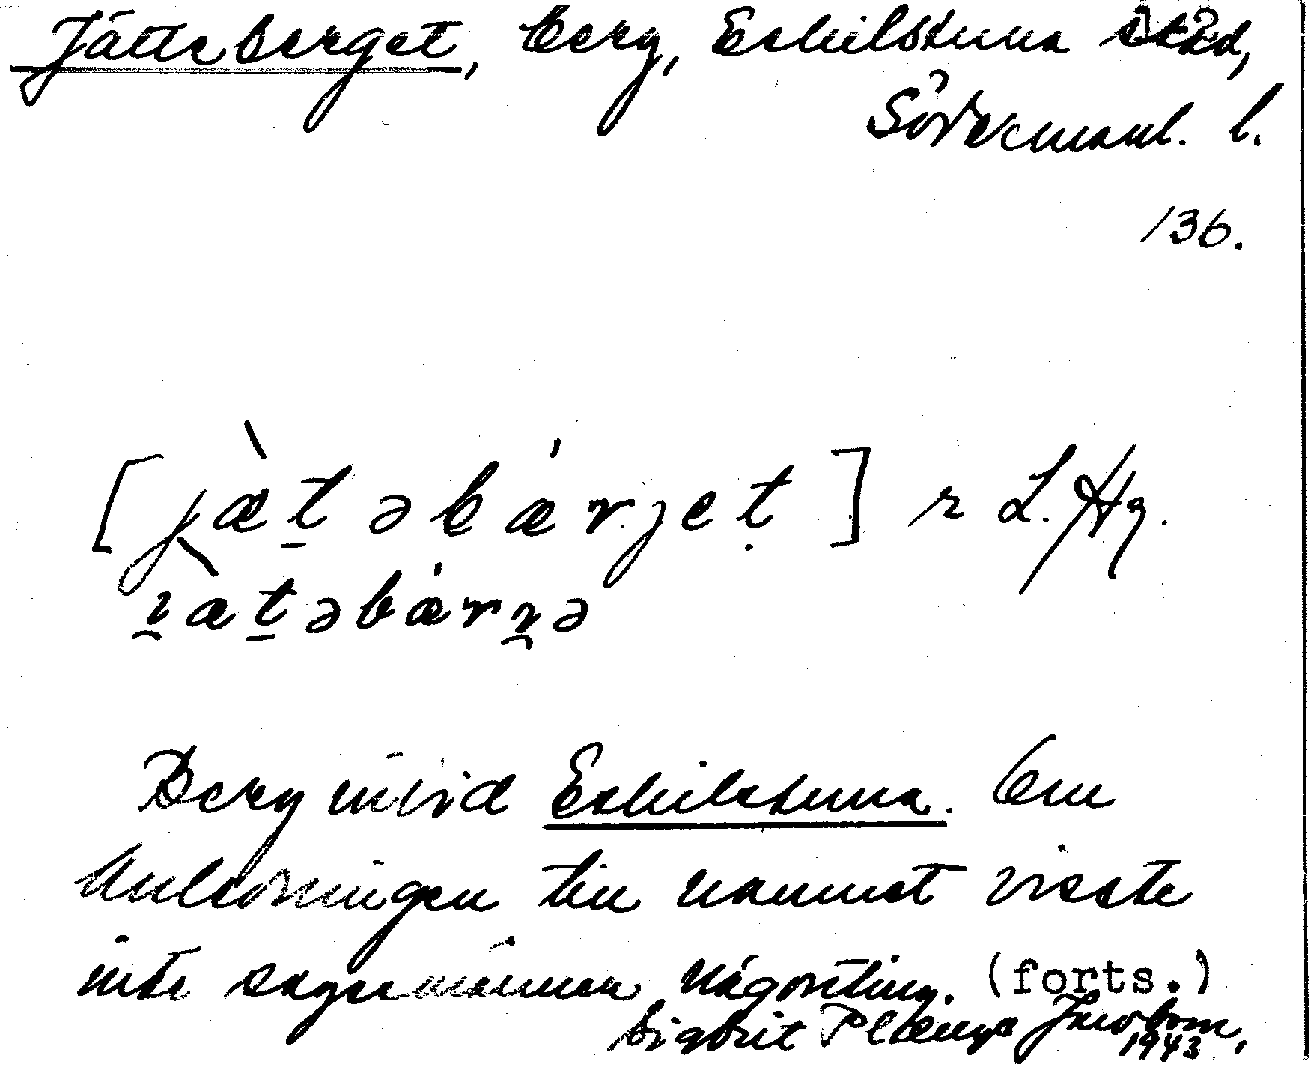 Jätteberget, berg, Eskilstuna stad,
Södermanl. l.
136.
[jæ̀t̠əbæ̍rjeṭ] r L. Hg.
æ̀t̠əbæ̍r ə
Berg invid Eskilstuna. Om
anledningen till namnet visste
inte sagesmannen någonting. (forts.)
Sigbrit Plænge Jacobson,
1943